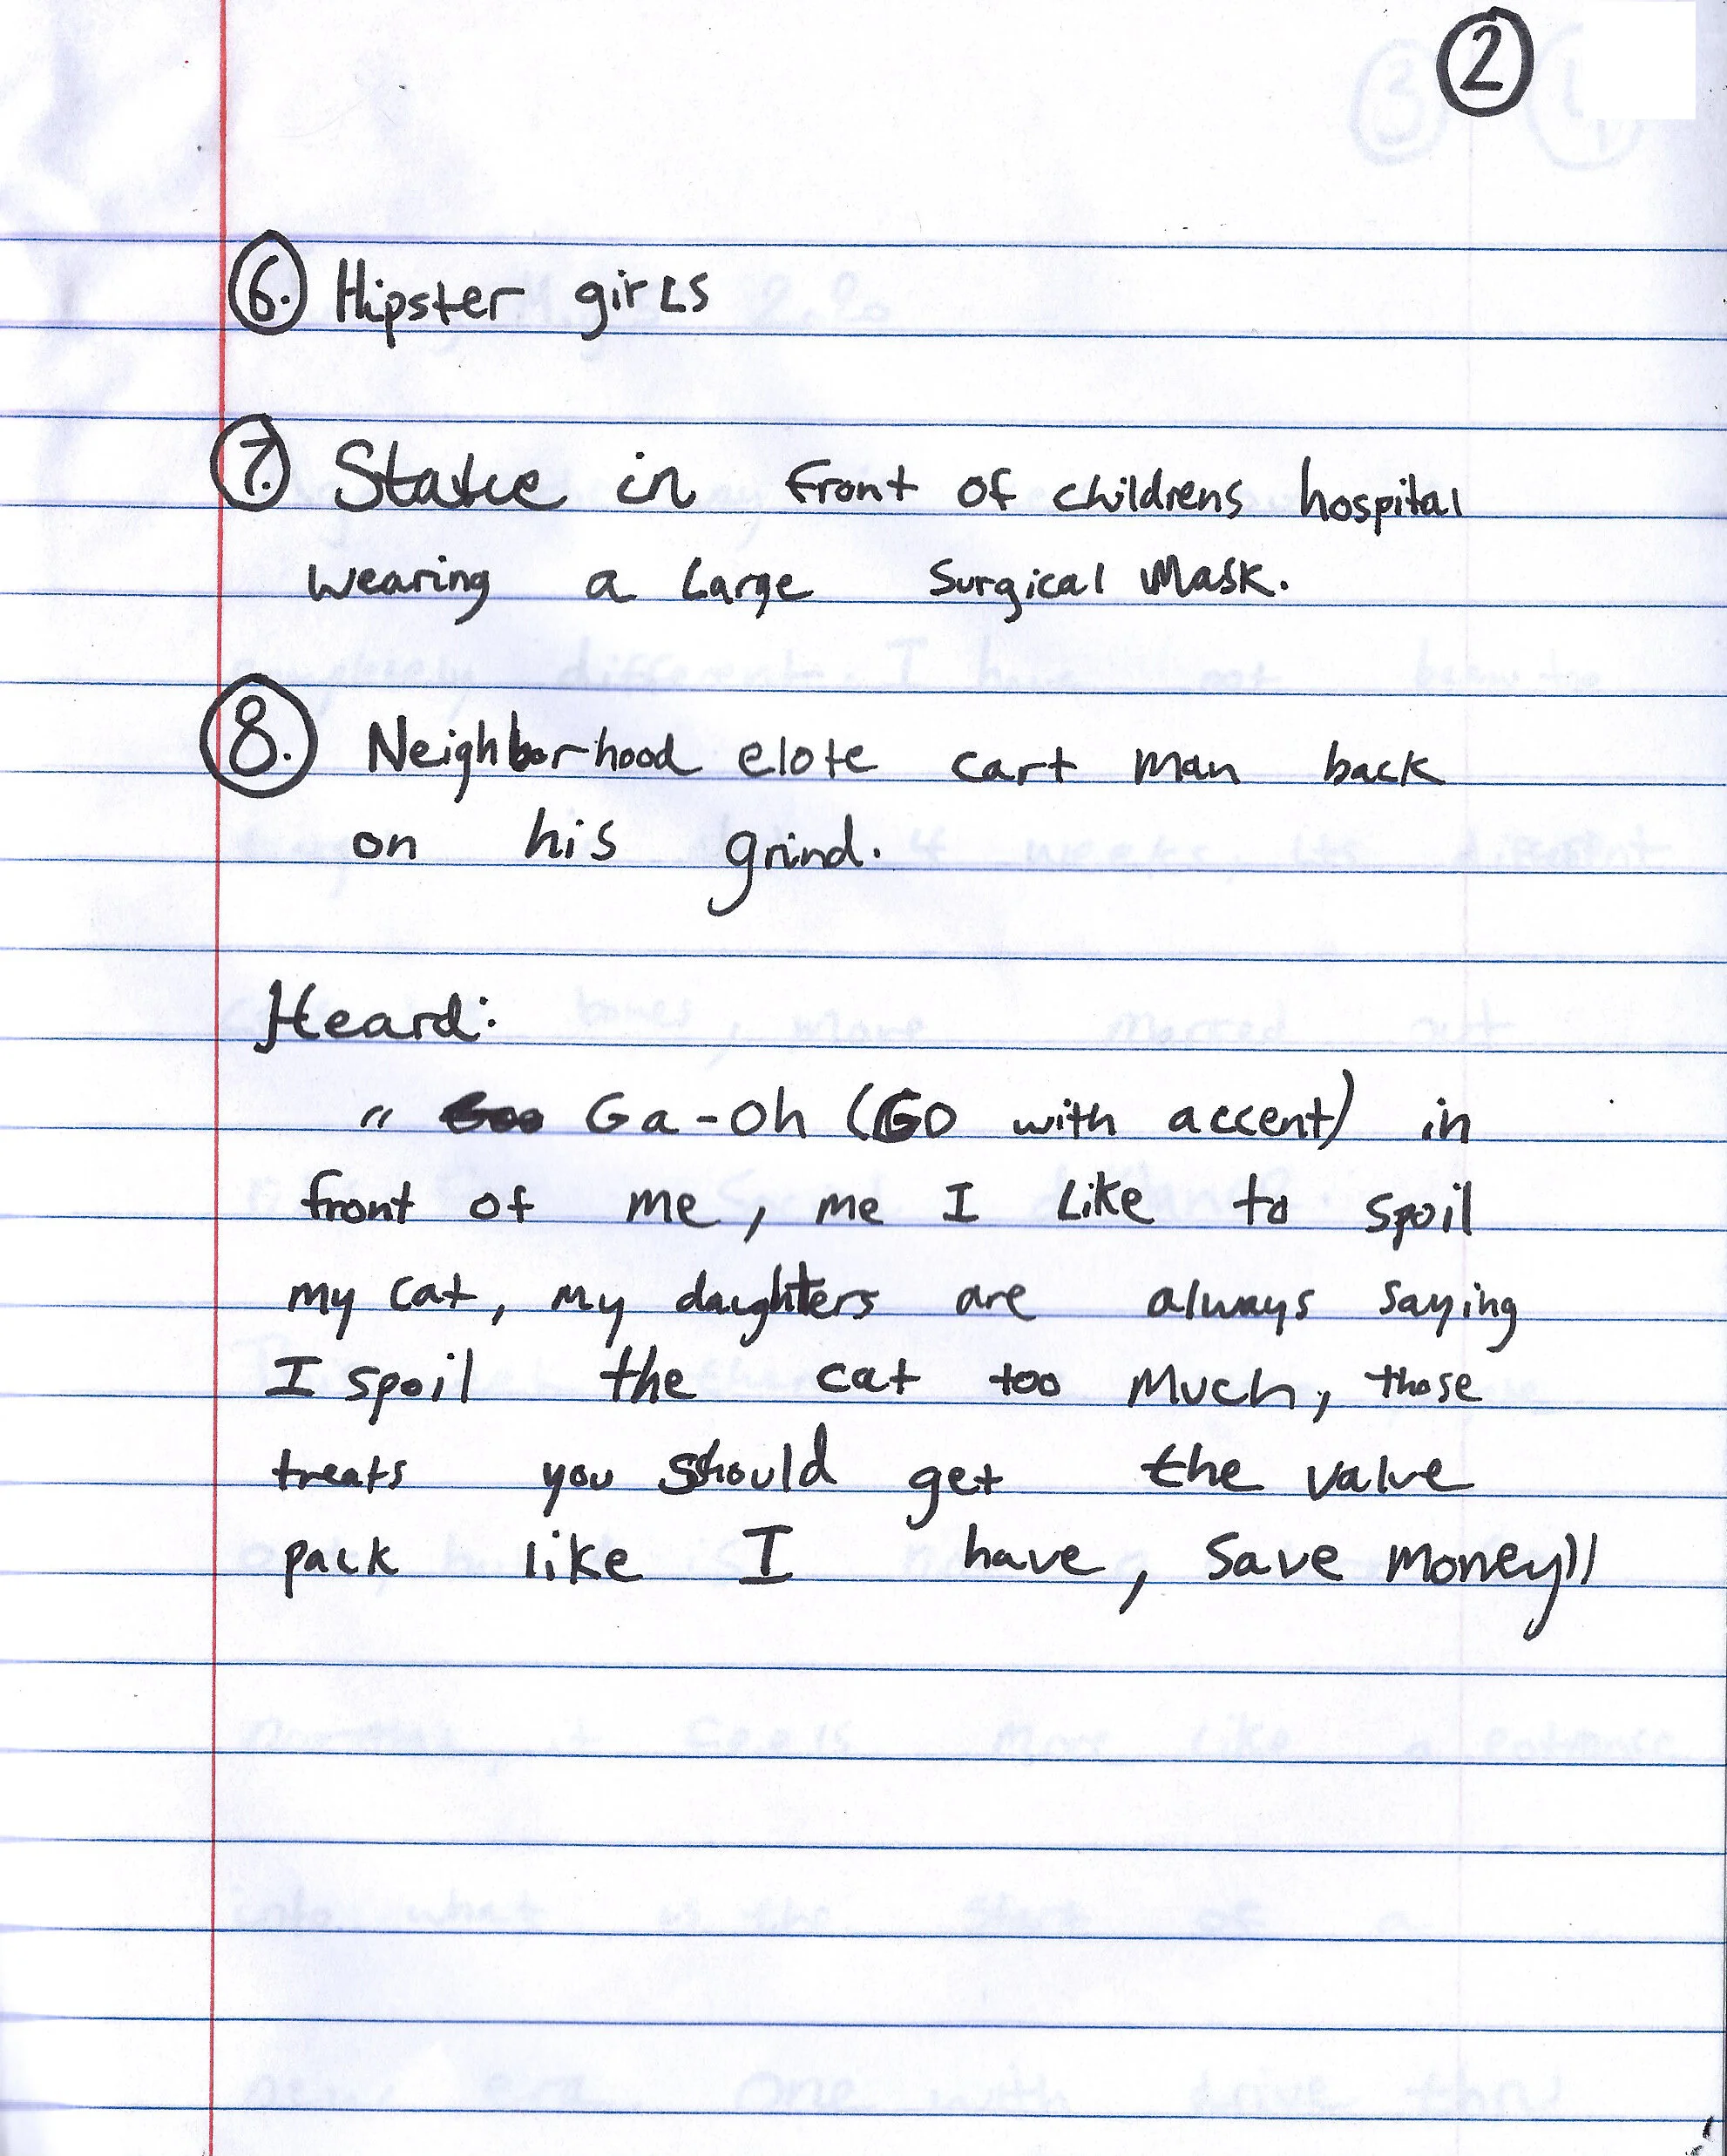 2
6. Hipster girls
7. Statue in front of childrens hospital
wearing a large surgical mask.
8. Neighborhood elote cart man back
on his grind.
Heard:
" Ga-oh (GO with accent) in
front of me, me I like to spoil
my cat, my daughters are always saying
I spoil the cat too much, those
treats you should get the value
pack like I have, save money"